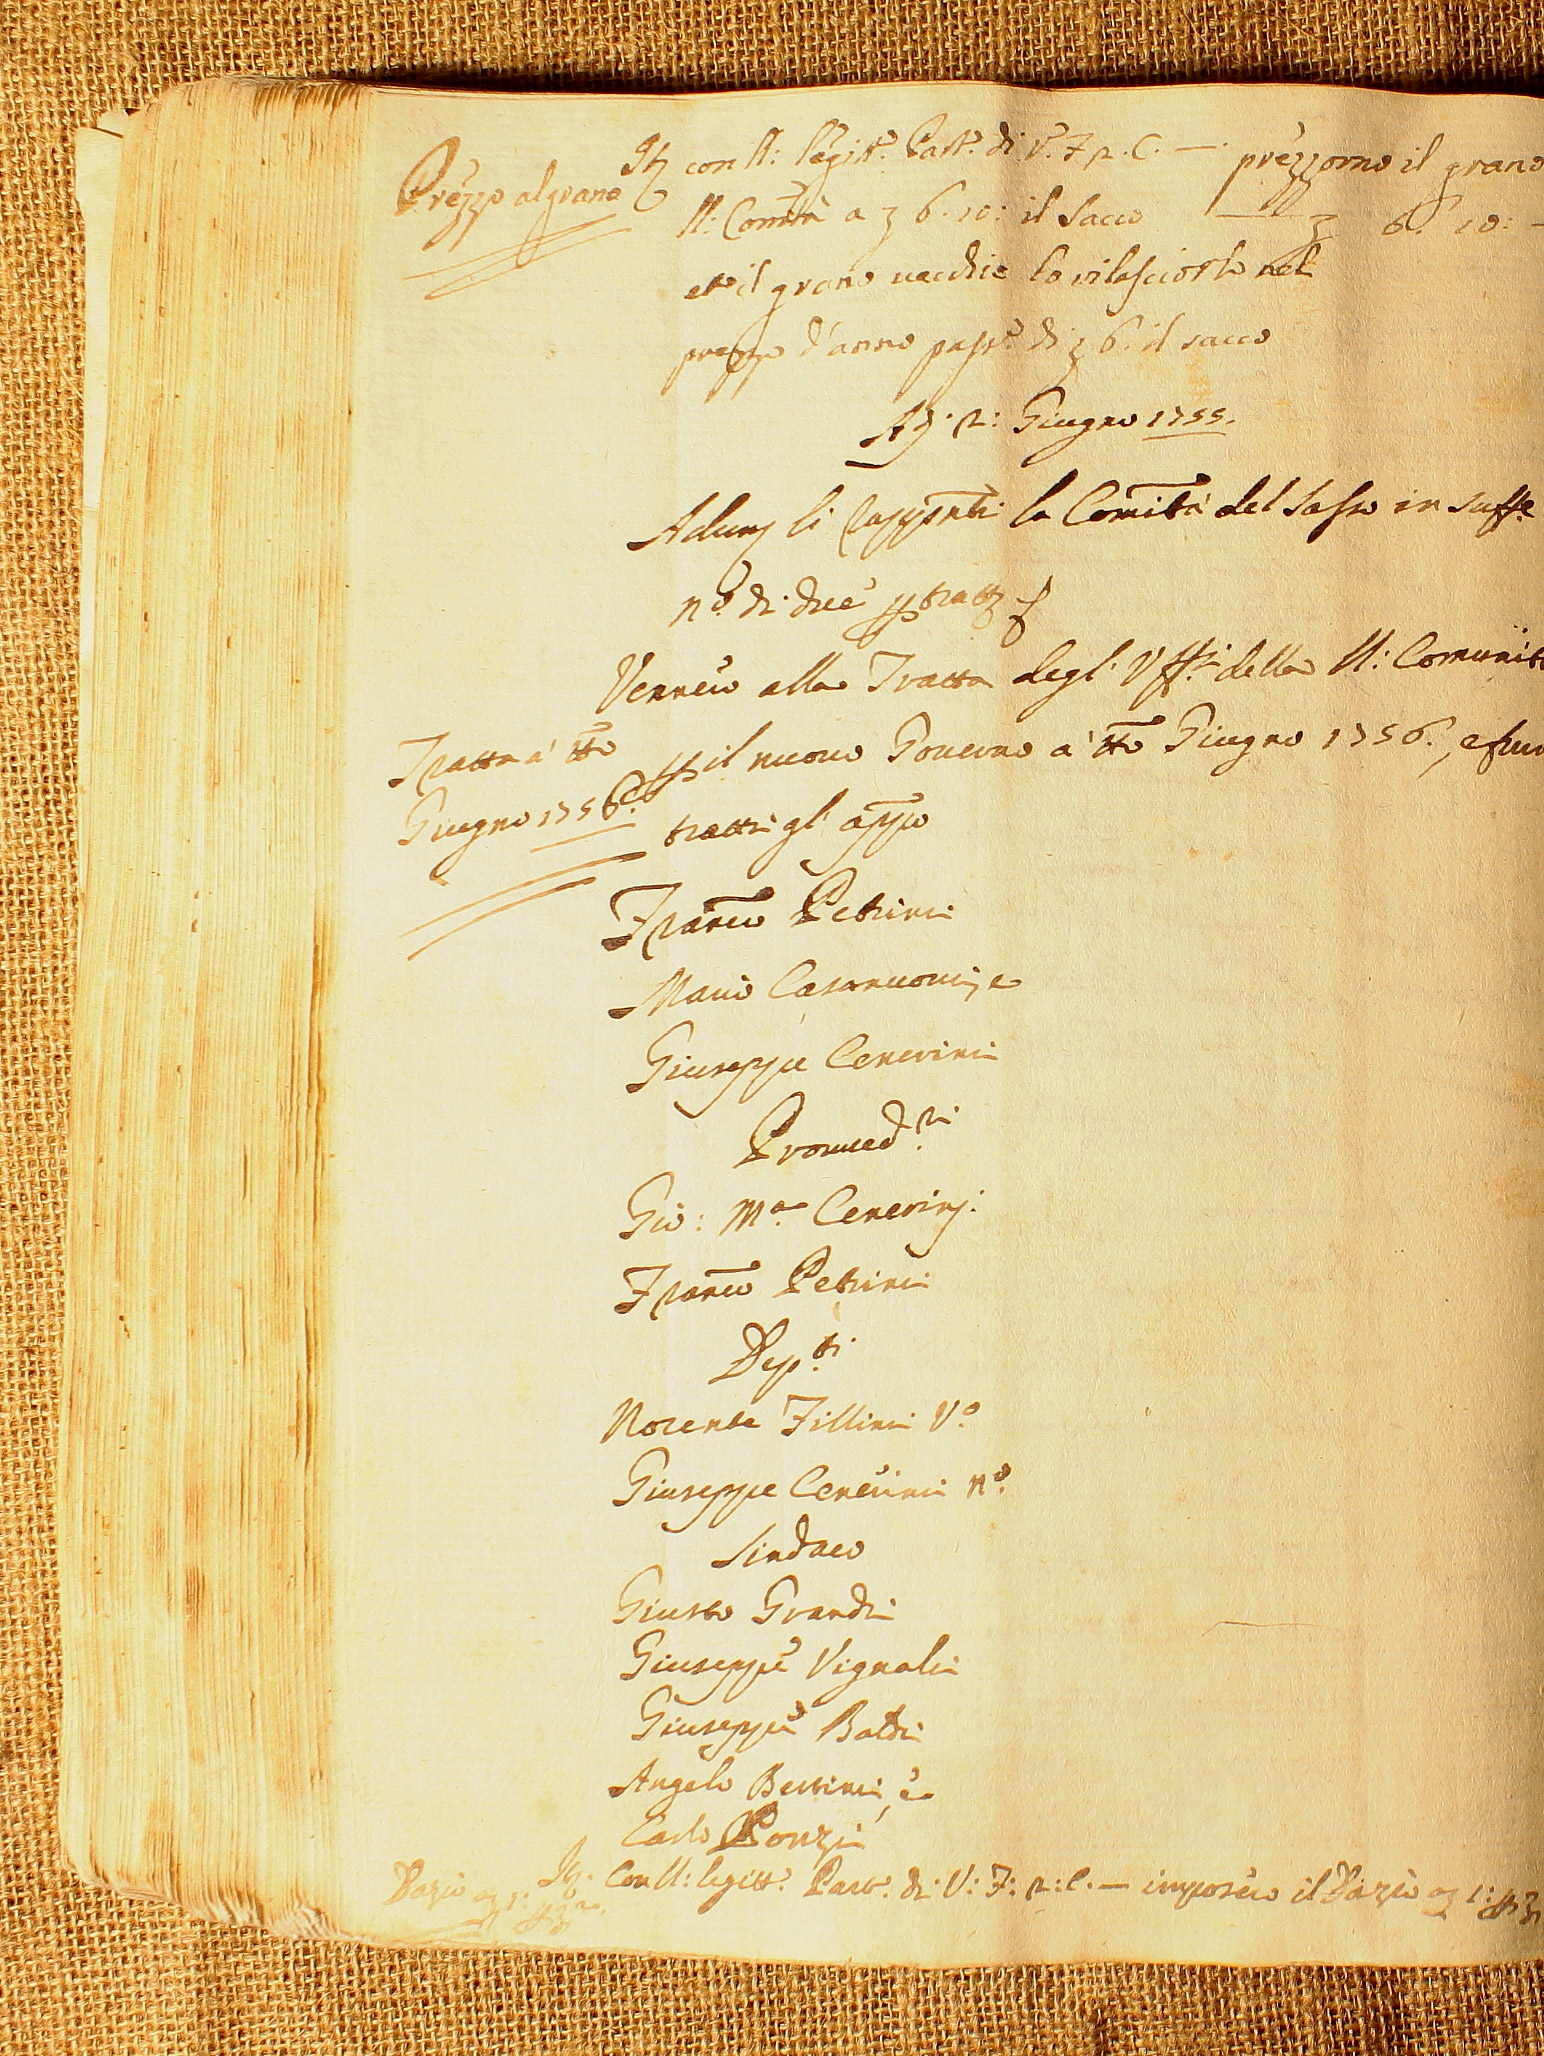 Prezzo al grano
Ib con ll: legitt.o Part.o di V. 7 n. C. — prezzorno il grano
ll: Comtà a z 6. 10: il Sacco — z 6. 10: —
et il grano vecchio lo rilasciorto nel
prezzo d'anno pass.o di z 6. il sacco
Adj. 2: Giugno 1755.
Adunj li Rappnti la Comità del Sasso in suffe
n.o di due p trattj
Venneo alla Tratta degl' Uffi: della ll: Comunit
Tratta a' tto
Giugno 1756.
p il nuovo Governo a' tto Giugno 1756., e furo
tratti gl' appo
Franco Petrini
Mario Casanuovi, e
Giuseppe Cenerini
Provved.ri
Gio: M.a Cenerinj:
Franco Petrini
Dep.ti
Nocente Fillini V.o
Giuseppe Cenerini N.o
Sindaco
Giusto Grandi
Giuseppe Vignali
Giuseppe Baldi
Angelo Bertini, e
Carlo Ponzi
Dazio
Ib. Con ll: legitt.o Part.o di V: F: n: C. — imposero il Dazio